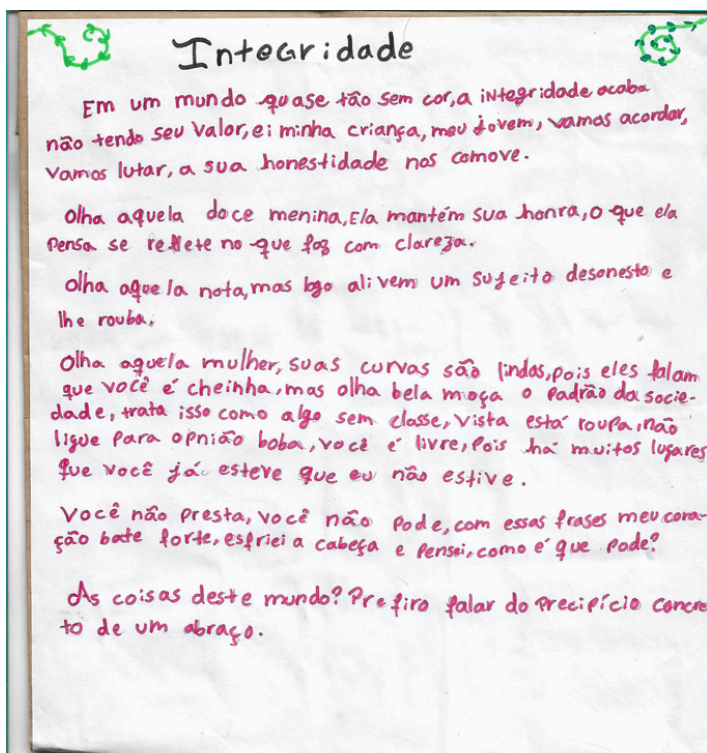 Integridade
Em um mundo quase tão sem cor, a integridade acaba
não tendo seu valor, ei minha criança, meu jovem, vamos acordar,
vamos lutar, a sua honestidade nos comove.
Olha aquela doce menina, Ela mantém sua honra, o que ela
pensa se reflete no que faz com clareza.
Olha aquela nota, mas logo ali vem um sujeito desonesto e
lhe rouba.
Olha aquela mulher, suas curvas são lindas, pois eles falam
que você é cheinha, mas olha bela moça o padrão da socie-
dade, trata isso como algo sem classe, vista está roupa, não
ligue para opnião boba, você é livre, pois há muitos lugares
que você já esteve que eu não estive.
Você não presta, você não pode, com essas frases meu cora-
ção bate forte, esfriei a cabeça e pensei, como é que pode?
As coisas deste mundo? Prefiro falar do precipício concre
to de um abraço.